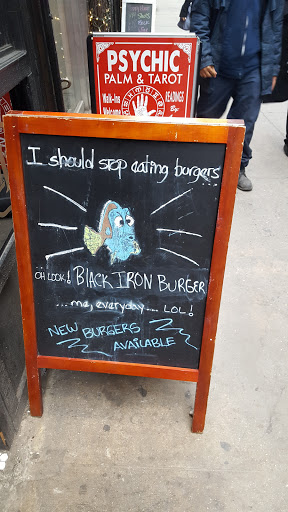 PSYCHIC
PALM & TAROT
Walk-Ins
Welcome
READINGS
By:
I should stop eating burgers...
OH LOOK! BLACK IRON BURGER
... me, everyday ... LOL!
NEW BURGERS
AVAILABLE